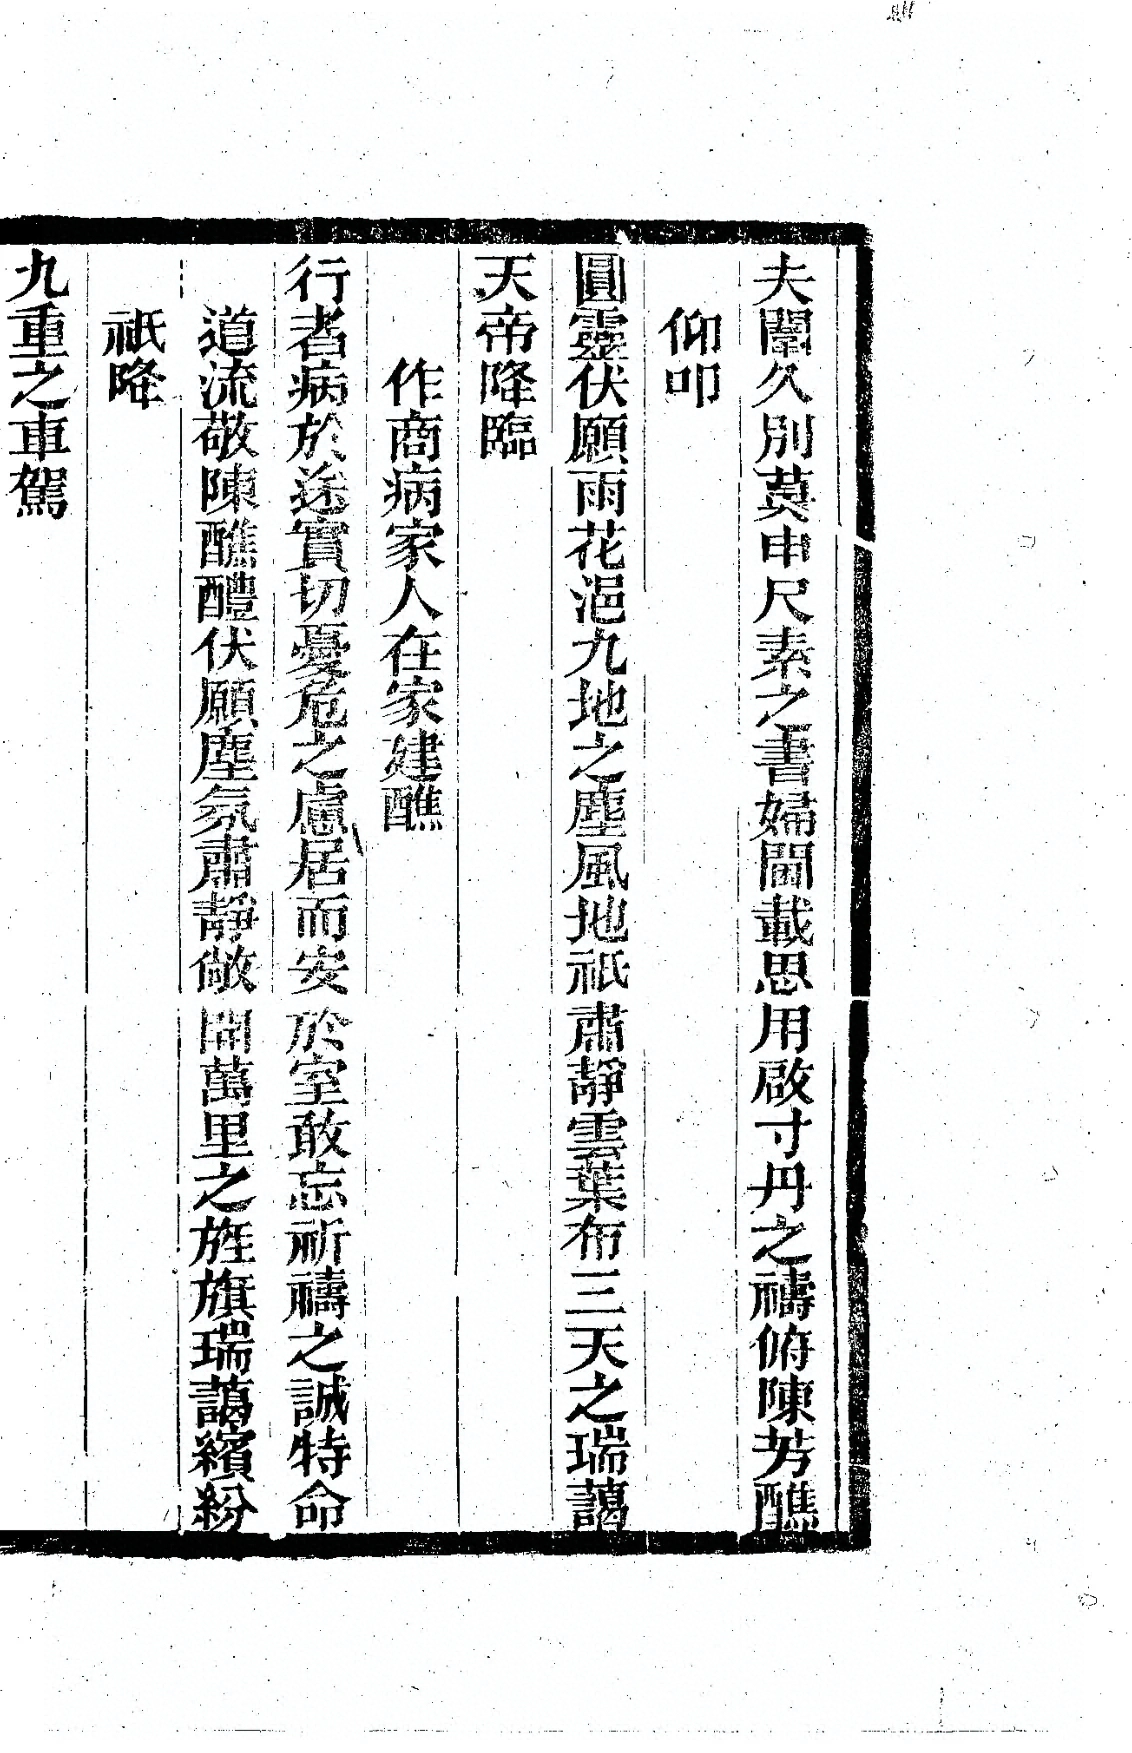 夫闈久別莫申尺素之書婦閫載思用啟寸丹之禱俯陳芳醮
仰叩
圓靈伏願雨花浥九地之塵風地祇肅靜雲葉布三天之瑞藹
天帝降臨
作商病家人在家建醮
行者病於途實切憂危之慮居而安於室敢忘祈禱之誠特命
道流敬陳醮醴伏願塵氛肅靜敞開萬里之旌旗瑞藹繽紛
祇降
九重之車駕